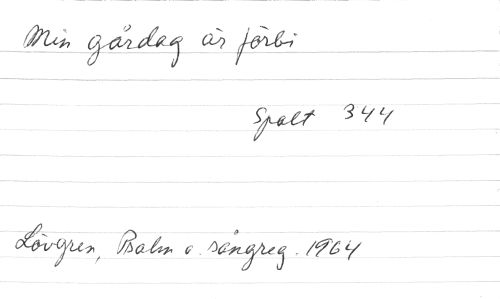 Min gårdag är förbi
Spalt 344
Lövgren, Psalm o. sångreg. 1964